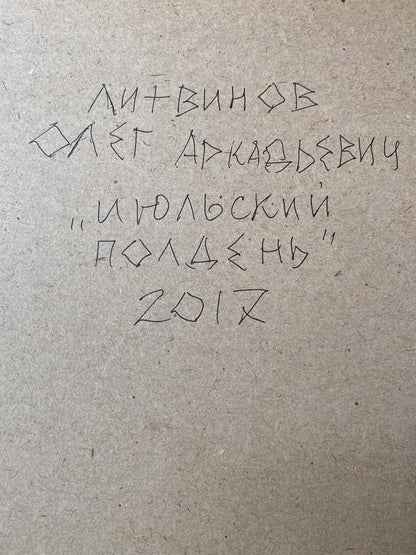 ЛИТВИНОВ
ОЛЕГ АРКАДЬЕВИЧ
„ИЮЛЬСКИЙ
ПОЛДЕНЬ"
2017